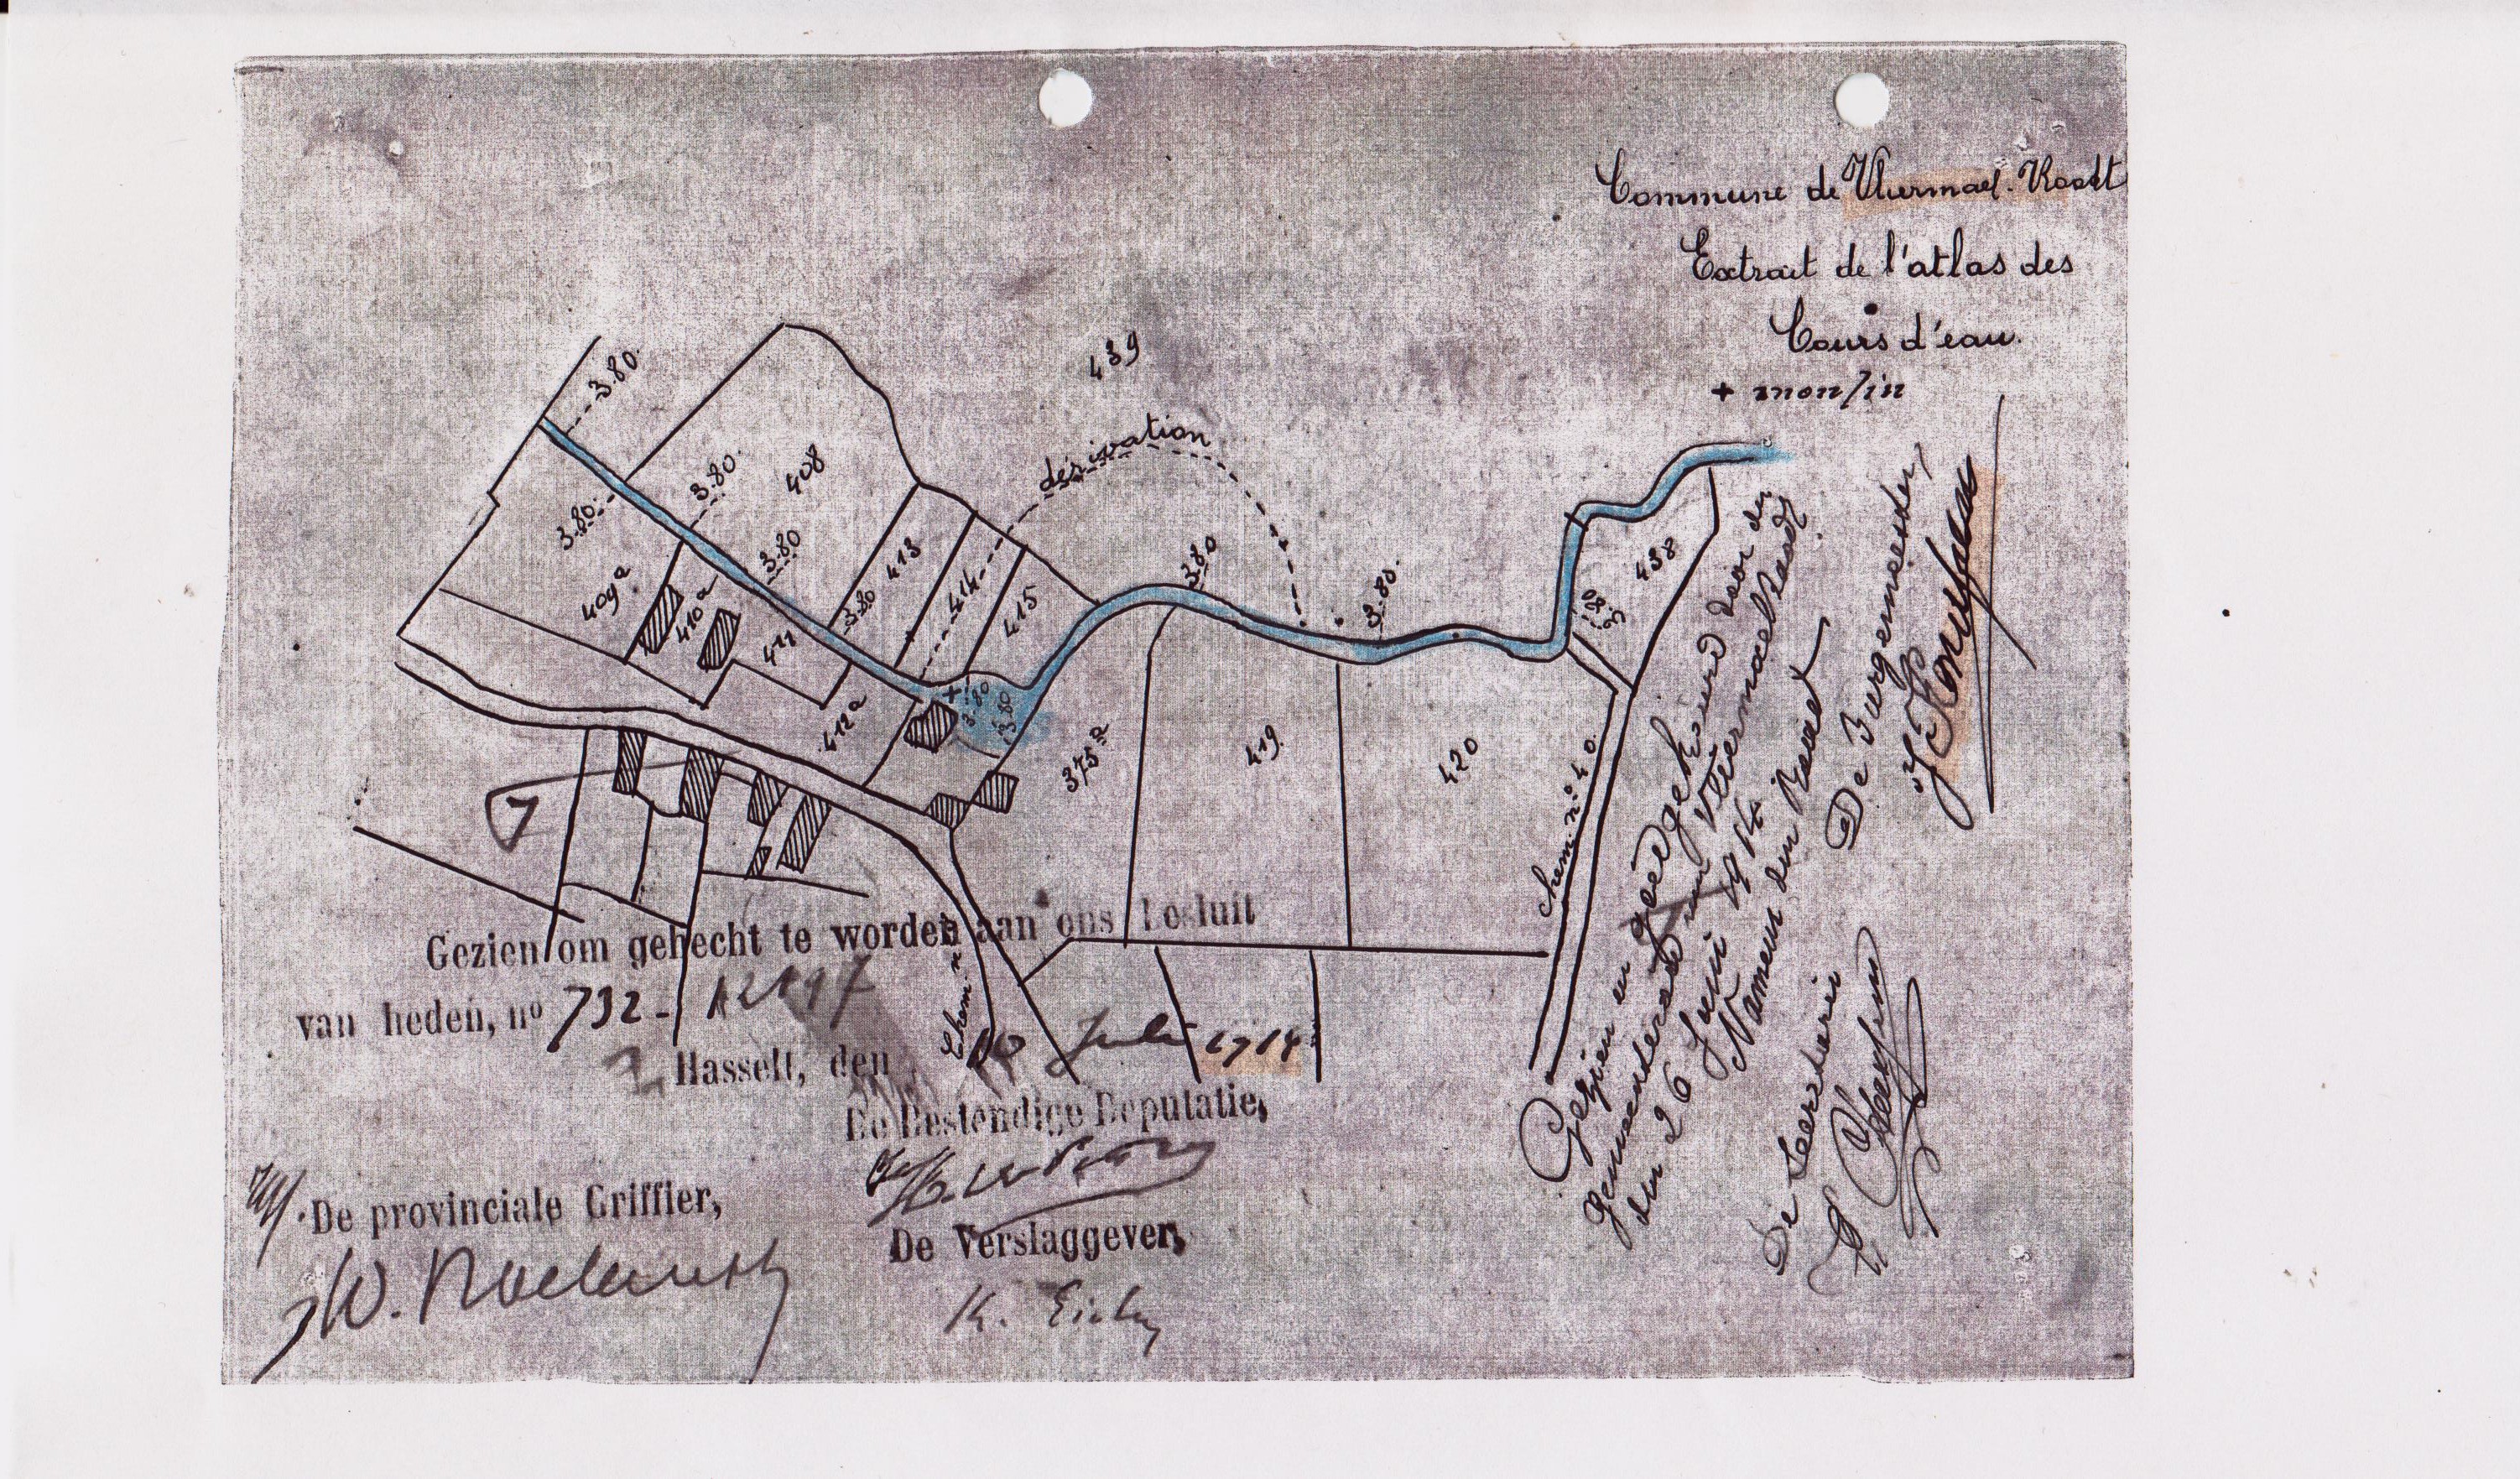 Commune de Vliermael-Roodt
Extrait de l'atlas des
Cours d'eau.
+ monlin
439
3.80.
dérivation
3.80.
408
3.80.
3.80
3.80
413
3.80.
409a
410a
411
3.80
414
415
438
3.80
3.80
3.80
412a
375a
419
420
chem. n° 40.
Chem. n
Gezien om gehecht te worden aan ons besluit
van heden, no 732-
Hasselt, den 10 Juli 1914
De Bestendige Deputatie,
De provinciale Griffier,
De Verslaggever,
Gezien en goedgekeurd door den
Gemeenteraad van Vliermaelroodt
den 26 Juni 1914
Namens den Raad
De Burgemeester,
De Secretaris